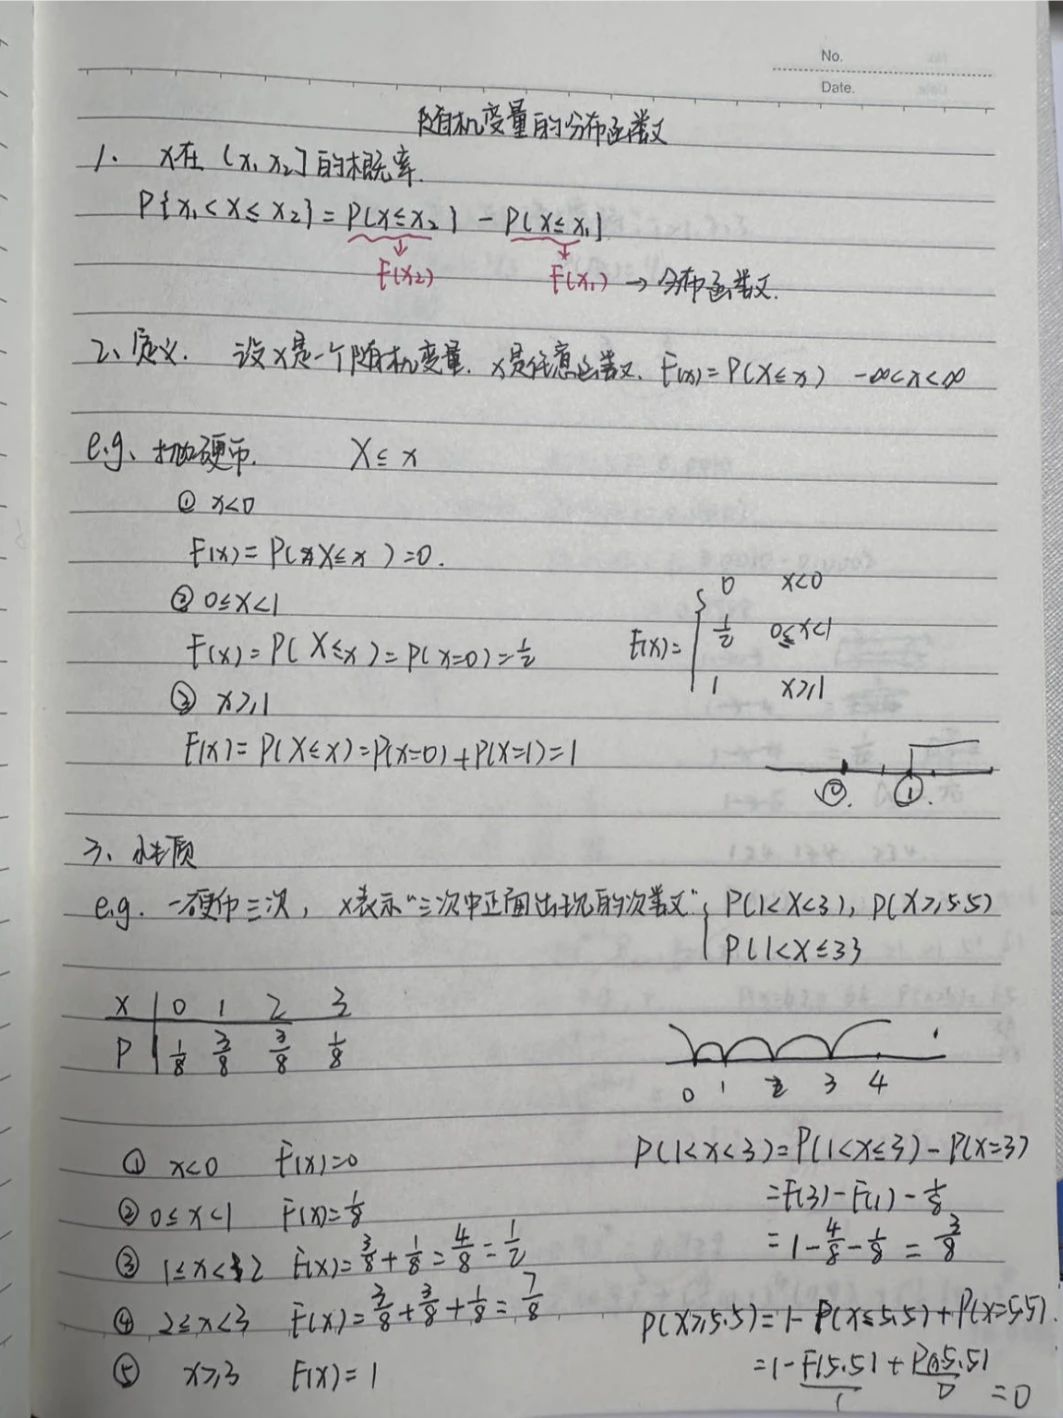 No.
Date.
随机变量的分布函数
1. X在 (x₁, x₂] 的概率.
P{x₁<X≤x₂} = P{X≤x₂} - P{X≤x₁}
F(x₂) F(x₁) → 分布函数.
2、定义. 设X是一个随机变量. x是任意函数. F(x)=P(X≤x) -∞<x<∞
e.g、抛硬币. X≤x
① x<0
F(x)=P(X≤x)=0.
② 0≤x<1
F(x)=P(X≤x)=P(x=0)=1/2
③ x≥1
F(x)=P(X≤x)=P(x=0)+P(x=1)=1
F(x)= { 0 x<0
1/2 0≤x<1
1 x≥1
0. 1.
3、性质
e.g. 一硬币三次, X表示"三次中正面出现的次数"; P(1<X<3), P(X≥5.5)
P{1<X≤3}
X 0 1 2 3
P 1/8 3/8 3/8 1/8
0 1 2 3 4
① x<0 F(x)=0
② 0≤x<1 F(x)=1/8
③ 1≤x<2 F(x)=3/8+1/8=4/8=1/2
④ 2≤x<3 F(x)=3/8+3/8+1/8=7/8
⑤ x≥3 F(x)=1
P(1<x<3)=P(1<x≤3)-P(x=3)
=F(3)-F(1)-1/8
=1-4/8-1/8=3/8
P(X≥5.5)=1-P(X≤5.5)+P(X=5.5).
=1-F(5.5)+P(5.5)
1 0 =0